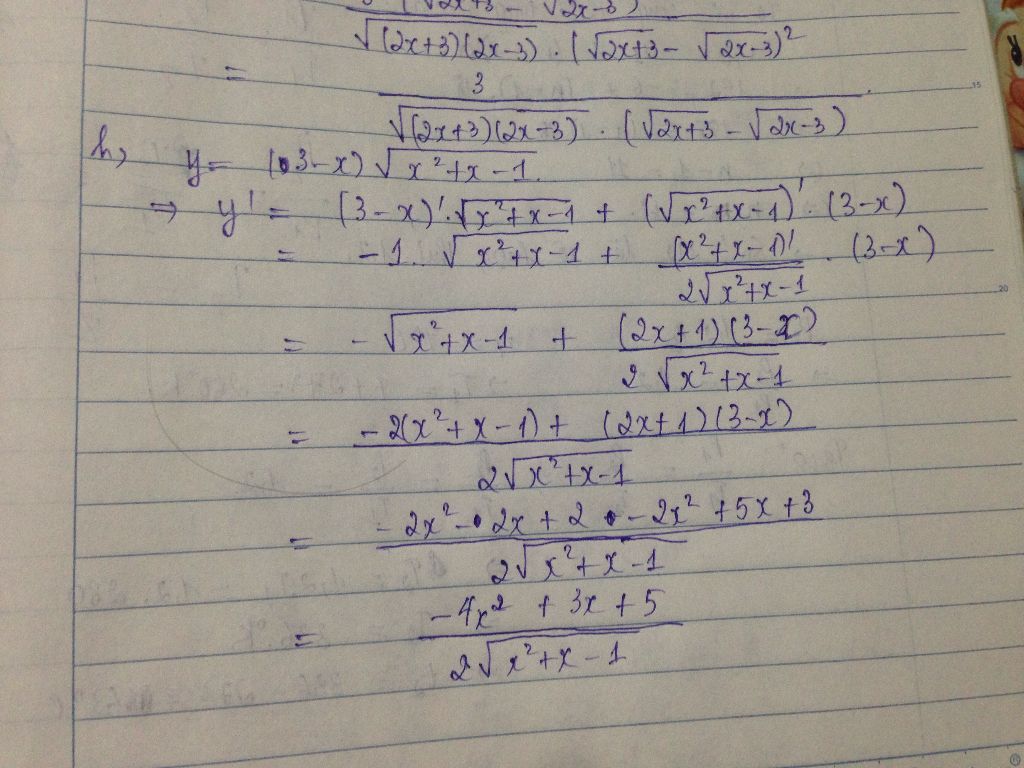 3 (√2x+3 − √2x−3)
√(2x+3)(2x−3) . (√2x+3 − √2x−3)²
= 3
√(2x+3)(2x−3) . (√2x+3 − √2x−3)
h, y = (3−x)√x²+x−1.
⇒ y' = (3−x)'.√x²+x−1 + (√x²+x−1)'.(3−x)
= −1. √x²+x−1 + (x²+x−1)' . (3−x)
2√x²+x−1
= −√x²+x−1 + (2x+1)(3−x)
2√x²+x−1
= −2(x²+x−1) + (2x+1)(3−x)
2√x²+x−1
= −2x² − 2x + 2 − 2x² + 5x + 3
2√x²+x−1
= −4x² + 3x + 5
2√x²+x−1
15
20